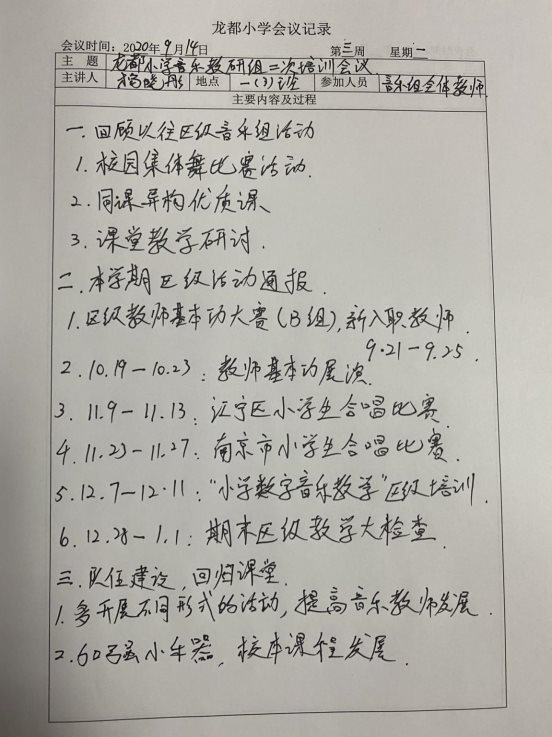 龙都小学会议记录
会议时间：2020年9月14日 第三周 星期一
主题 龙都小学音乐教研组二次培训会议
主讲人 杨晓彤 地点 一（3）班 参加人员 音乐组全体教师
主要内容及过程
一.回顾以往区级音乐组活动
1.校园集体舞比赛活动.
2.同课异构优质课
3.课堂教学研讨.
二.本学期区级活动通报.
1.区级教师基本功大赛（B组），新入职教师.
9.21-9.25.
2.10.19-10.23：教师基本功展演.
3.11.9-11.13：江宁区小学生合唱比赛.
4.11.23-11.27：南京市小学生合唱比赛.
5.12.7-12.11：“小学数字音乐教学”区级培训.
6.12.28-1.1：期末区级教学大检查.
三.队伍建设，回归课堂.
1.多开展不同形式的活动，提高音乐教师发展.
2.小乐器，校本课程发展.